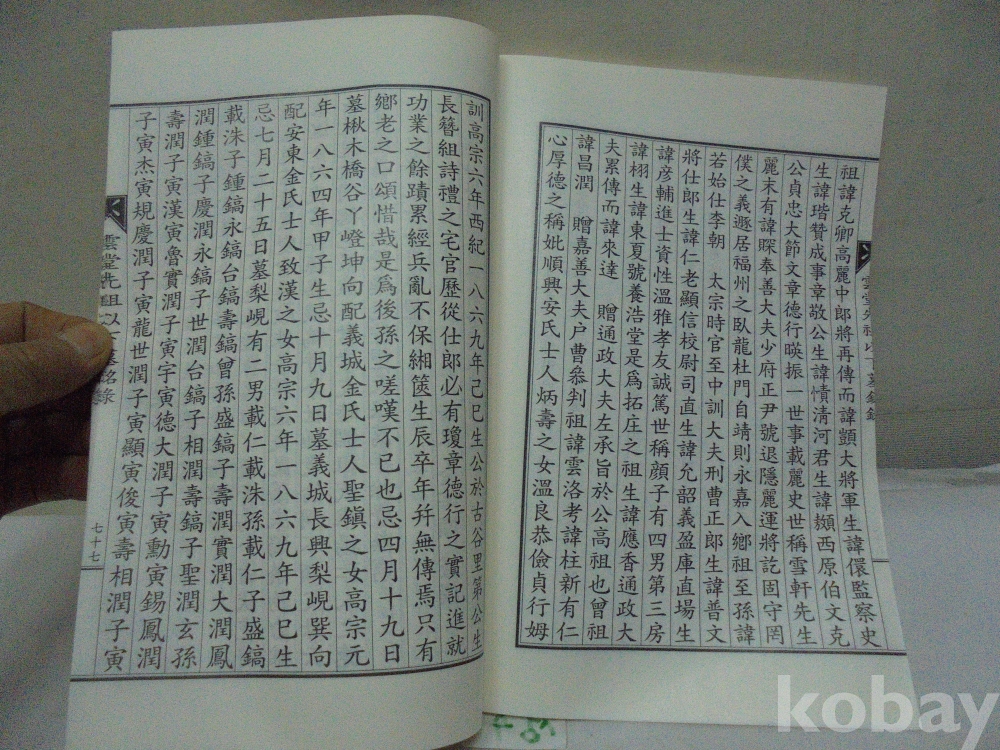 祖諱克卿高麗中郎將再傳而諱顗大將軍生諱儇監察史
生諱瑎贊成事章敬公生諱憤淸河君生諱頲西原伯文克
公貞忠大節文章德行暎振一世事載麗史世稱雪軒先生
麗末有諱賝奉善大夫少府正尹號退隱麗運將訖固守罔
僕之義遯居福州之臥龍杜門自靖則永嘉入鄉祖至孫諱
若始仕李朝 太宗時官至中訓大夫刑曹正郎生諱普文
將仕郎生諱仁老顯信校尉司直生諱允韶義盈庫直場生
諱彦輔進士資性溫雅孝友誠篤世稱顔子有四男第三房
諱栩生諱東夏號養浩堂是爲拓庄之祖生諱應香通政大
夫累傳而諱來達 贈通政大夫左承旨於公高祖也曾祖
諱昌潤 贈嘉善大夫户曹叅判祖諱雲洛考諱柱新有仁
心厚德之稱妣順興安氏士人炳壽之女溫良恭儉貞行姆
訓高宗六年西紀一八六九年己巳生公於古谷里第公生
長簪組詩禮之宅官歷從仕郎必有瓊章德行之實記進就
功業之餘蹟累經兵亂不保緗篋生辰卒年幷無傳焉只有
鄉老之口頌惜哉是爲後孫之嗟嘆不已也忌四月十九日
墓楸木橋谷丫嶝坤向配義城金氏士人聖鎭之女高宗元
年一八六四年甲子生忌十月九日墓義城長興梨峴巽向
配安東金氏士人致漢之女高宗六年一八六九年己巳生
忌七月二十五日墓梨峴有二男載仁載洙孫載仁子盛鎬
載洙子鍾鎬永鎬台鎬壽鎬曾孫盛鎬子壽潤實潤大潤鳳
潤鍾鎬子慶潤永鎬子世潤台鎬子相潤壽鎬子聖潤玄孫
壽潤子寅漢寅魯實潤子寅宇寅德大潤子寅動寅錫鳳潤
子寅杰寅規慶潤子寅龍世潤子寅顯寅俊寅壽相潤子寅
雲堂先祖以下墓銘錄
七十七
kobay